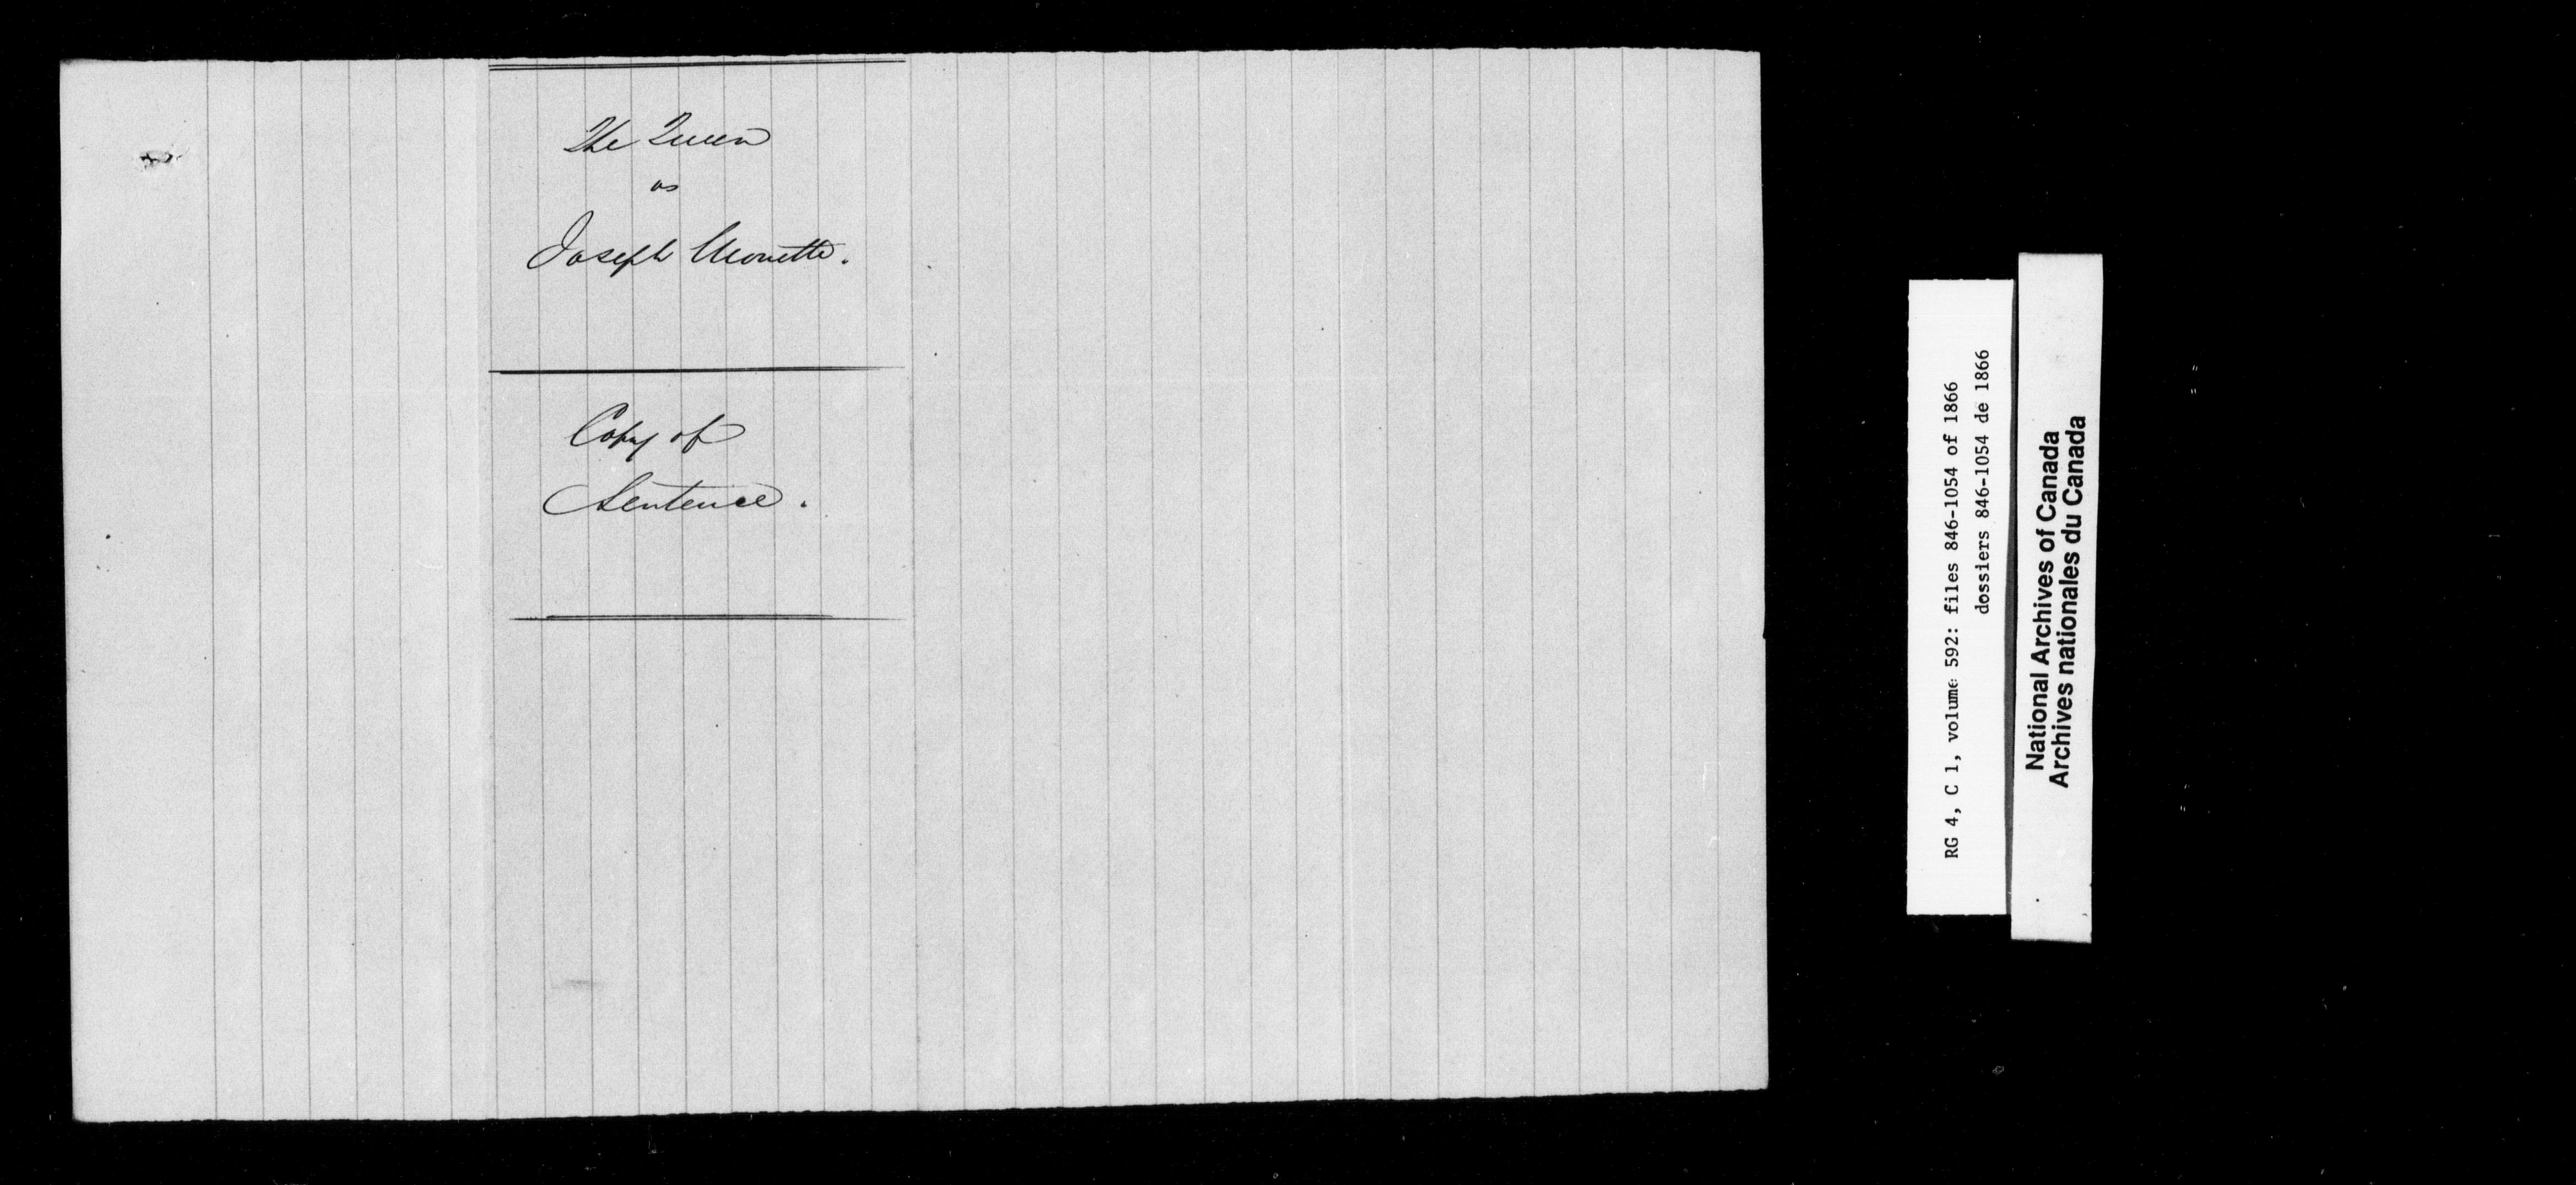 The Queen
vs
Joseph Monette.
Copy of
Sentence.
RG 4, C 1, volume 592: files 846-1054 of 1866
dossiers 846-1054 de 1866
National Archives of Canada
Archives nationales du Canada